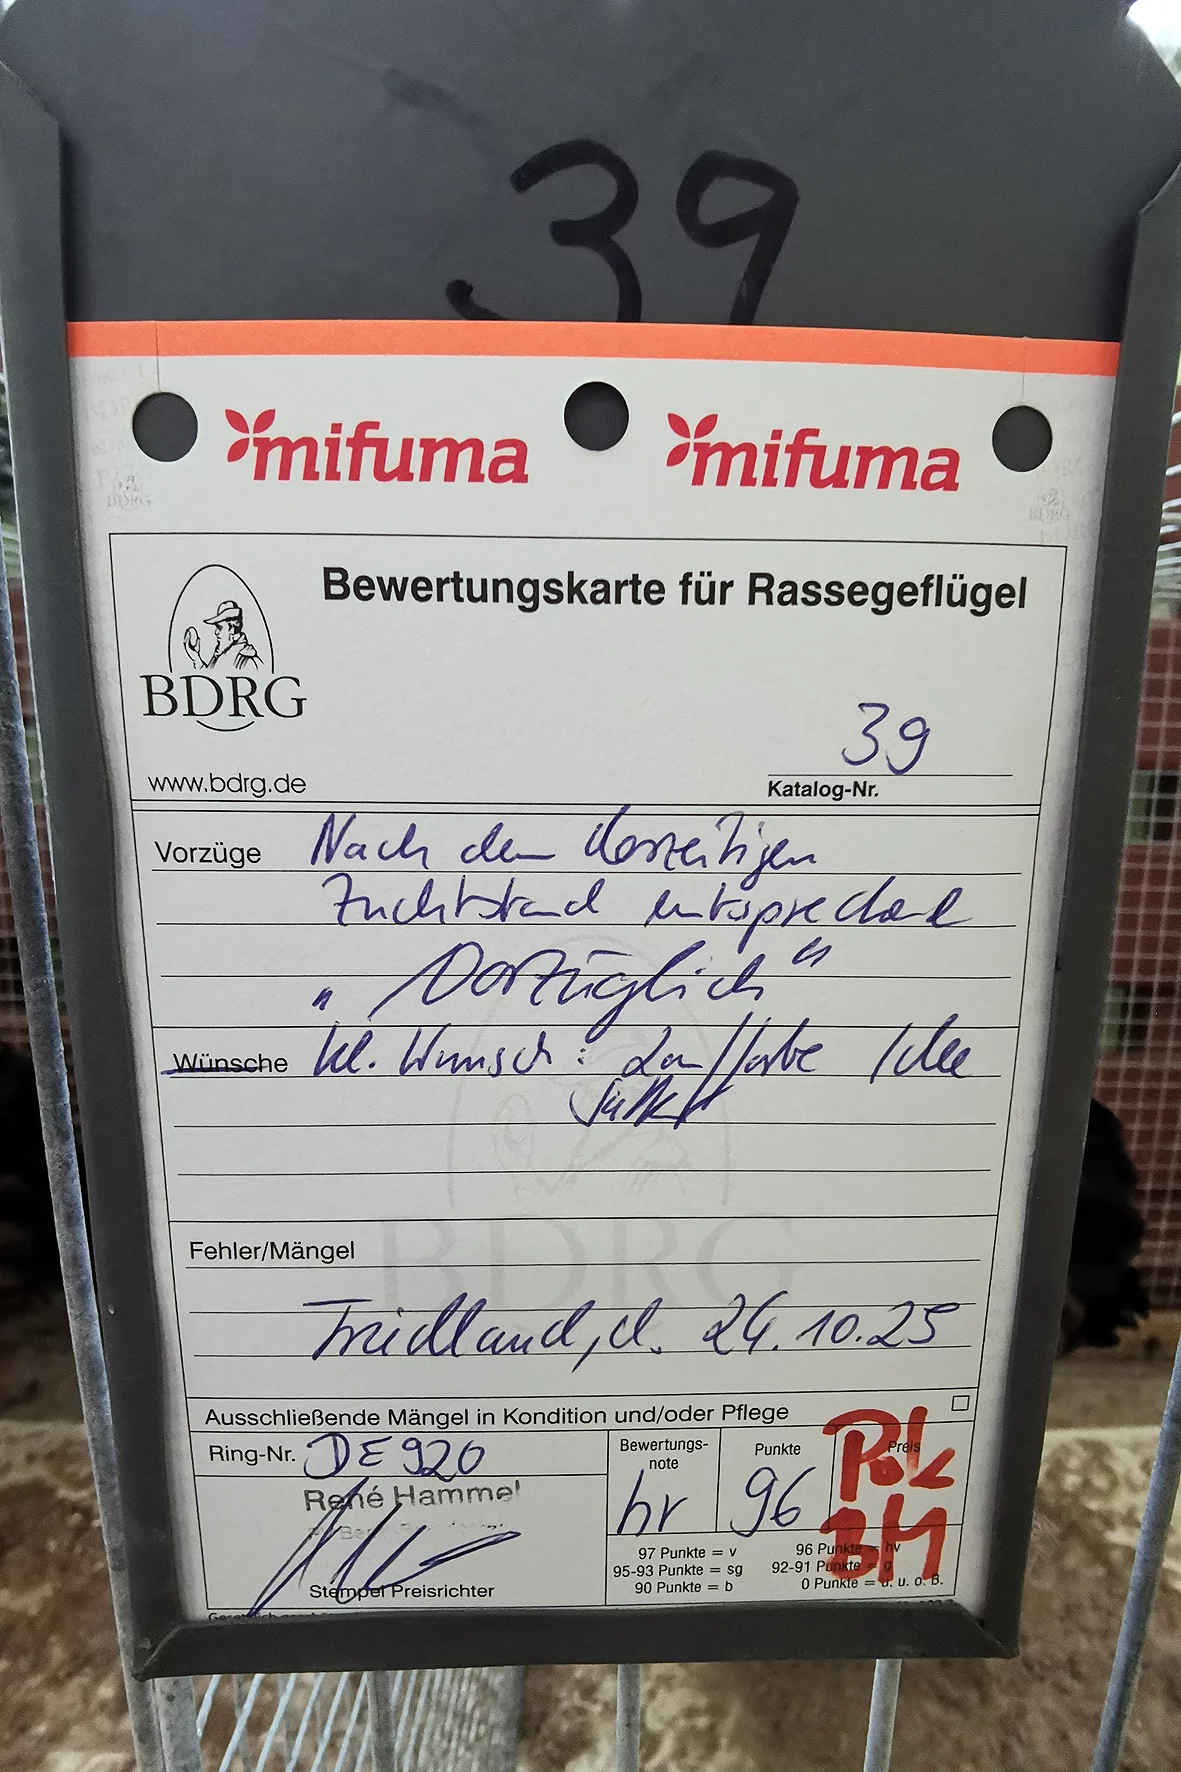 39
mifuma mifuma
Bewertungskarte für Rassegeflügel
BDRG
39
www.bdrg.de
Katalog-Nr.
Vorzüge Nach dem derzeitigen
Zuchtstand entsprechend
"Vorzüglich"
Wünsche kl. Wunsch: Lauffarbe Idee
satter
BDRG
Fehler/Mängel
Friedland, d. 24.10.25
Ausschließende Mängel in Kondition und/oder Pflege
Ring-Nr. DE 920
Bewertungs-
note
hv
Punkte
96
Preis
René Hammel
Stempel Preisrichter
97 Punkte = v 96 Punkte = hv
95-93 Punkte = sg 92-91 Punkte = g
90 Punkte = b 0 Punkte = u. u. o. B.